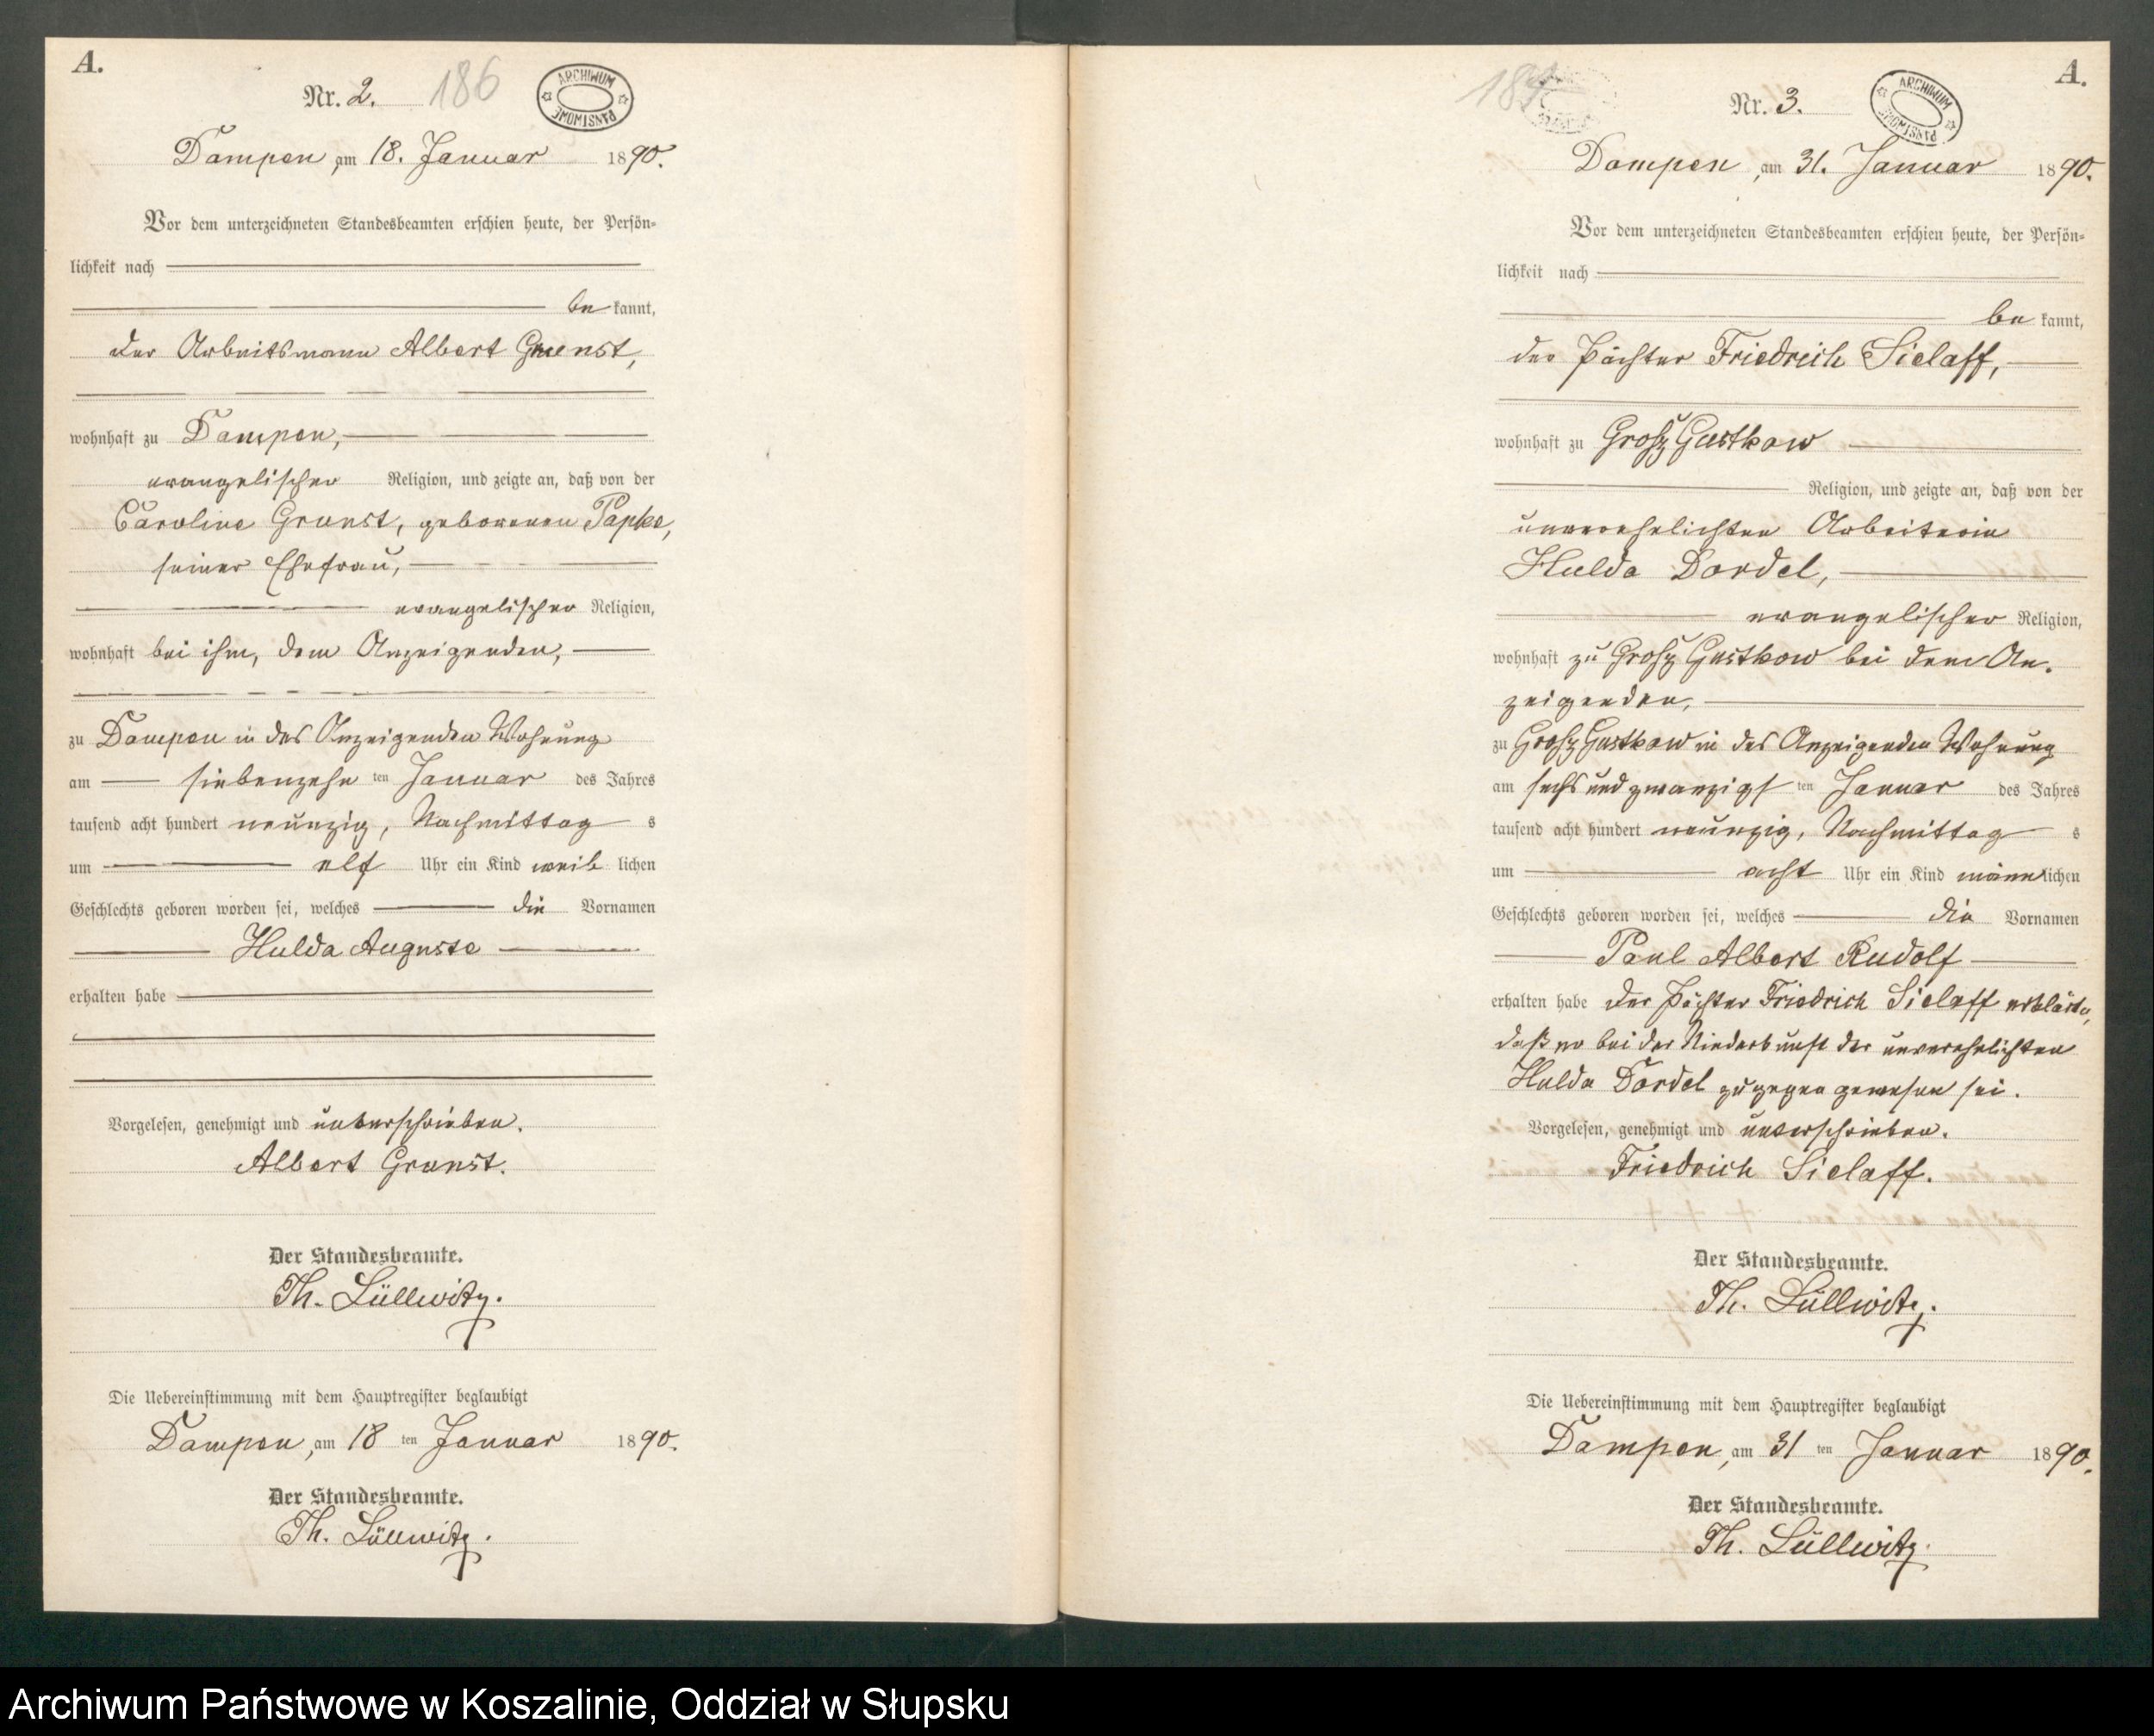 A.
Nr. 2. 186
ARCHIWUM PAŃSTWOWE
Dampen, am 18. Januar 1890.
Vor dem unterzeichneten Standesbeamten erschien heute, der Persön-
lichkeit nach
be kannt,
der Arbeitsmann Albert Grunst,
wohnhaft zu Dampen,
evangelischer Religion, und zeigte an, daß von der
Caroline Grunst, geborenen Papke,
seiner Ehefrau,
evangelischer Religion,
wohnhaft bei ihm, dem Anzeigenden,
zu Dampen in des Anzeigenden Wohnung
am siebenzehn ten Januar des Jahres
tausend acht hundert neunzig, Nachmittag s
um elf Uhr ein Kind weib lichen
Geschlechts geboren worden sei, welches die Vornamen
Hulda Auguste
erhalten habe
Vorgelesen, genehmigt und unterschrieben.
Albert Grunst.
Der Standesbeamte.
Th. Lüllwitz.
Die Uebereinstimmung mit dem Hauptregister beglaubigt
Dampen, am 18 ten Januar 1890.
Der Standesbeamte.
Th. Lüllwitz.
A.
Nr. 3.
ARCHIWUM PAŃSTWOWE
Dampen, am 31. Januar 1890.
Vor dem unterzeichneten Standesbeamten erschien heute, der Persön-
lichkeit nach
be kannt,
der Pächter Friedrich Sielaff,
wohnhaft zu Grosz Gustkow
Religion, und zeigte an, daß von der
unverehelichten Arbeiterin
Hulda Dardel,
evangelischer Religion,
wohnhaft zu Grosz Gustkow bei dem An-
zeigenden,
zu Grosz Gustkow in des Anzeigenden Wohnung
am sechs und zwanzigs ten Januar des Jahres
tausend acht hundert neunzig, Nachmittag s
um acht Uhr ein Kind männ lichen
Geschlechts geboren worden sei, welches die Vornamen
Paul Albert Rudolf
erhalten habe Der Pächter Friedrich Sielaff erklärte,
daß er bei der Niederkunft der unverehelichten
Hulda Dardel zugegen gewesen sei.
Vorgelesen, genehmigt und unterschrieben.
Friedrich Sielaff.
Der Standesbeamte.
Th. Lüllwitz.
Die Uebereinstimmung mit dem Hauptregister beglaubigt
Dampen, am 31 ten Januar 1890.
Der Standesbeamte.
Th. Lüllwitz.
Archiwum Państwowe w Koszalinie, Oddział w Słupsku